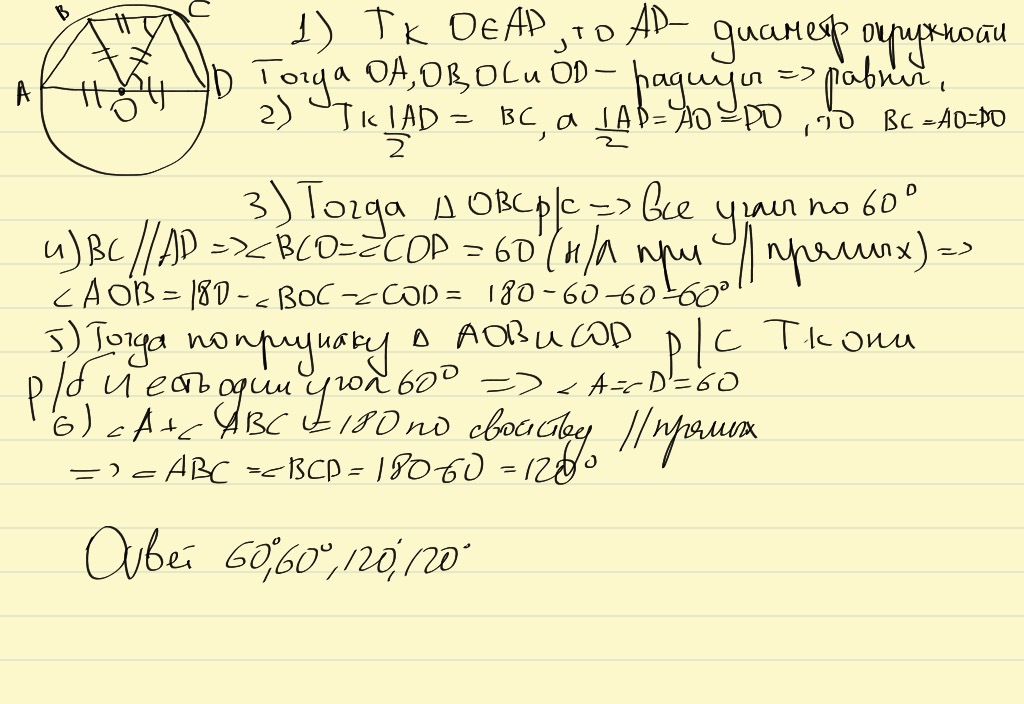 B C
A D
O
1) Тк O∈AD, то AD – диаметр окружности
Тогда OA, OB, OC и OD – радиусы => равны,
2) Тк 1/2 AD = BC, а 1/2 AD = AO = DO, то BC = AO = DO
3) Тогда Δ OBC р/с => все углы по 60°
4) BC // AD => ∠BCO = ∠COD = 60 (н/л при // прямых) =>
∠AOB = 180 - ∠BOC - ∠COD = 180 - 60 - 60 = 60°
5) Тогда по признаку Δ AOB и COD р/с Тк они
р/б и есть один угол 60° => ∠A = ∠D = 60
6) ∠A + ∠ABC = 180 по свойству // прямых
=> ∠ABC = ∠BCD = 180-60 = 120°
Ответ 60°, 60°, 120°, 120°